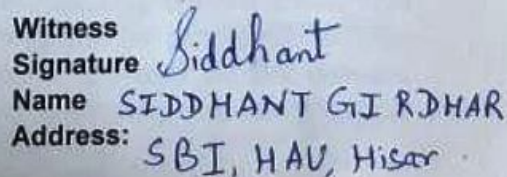 Witness
Signature Siddhant
Name SIDDHANT GIRDHAR
Address: SBI, HAU, Hisar.